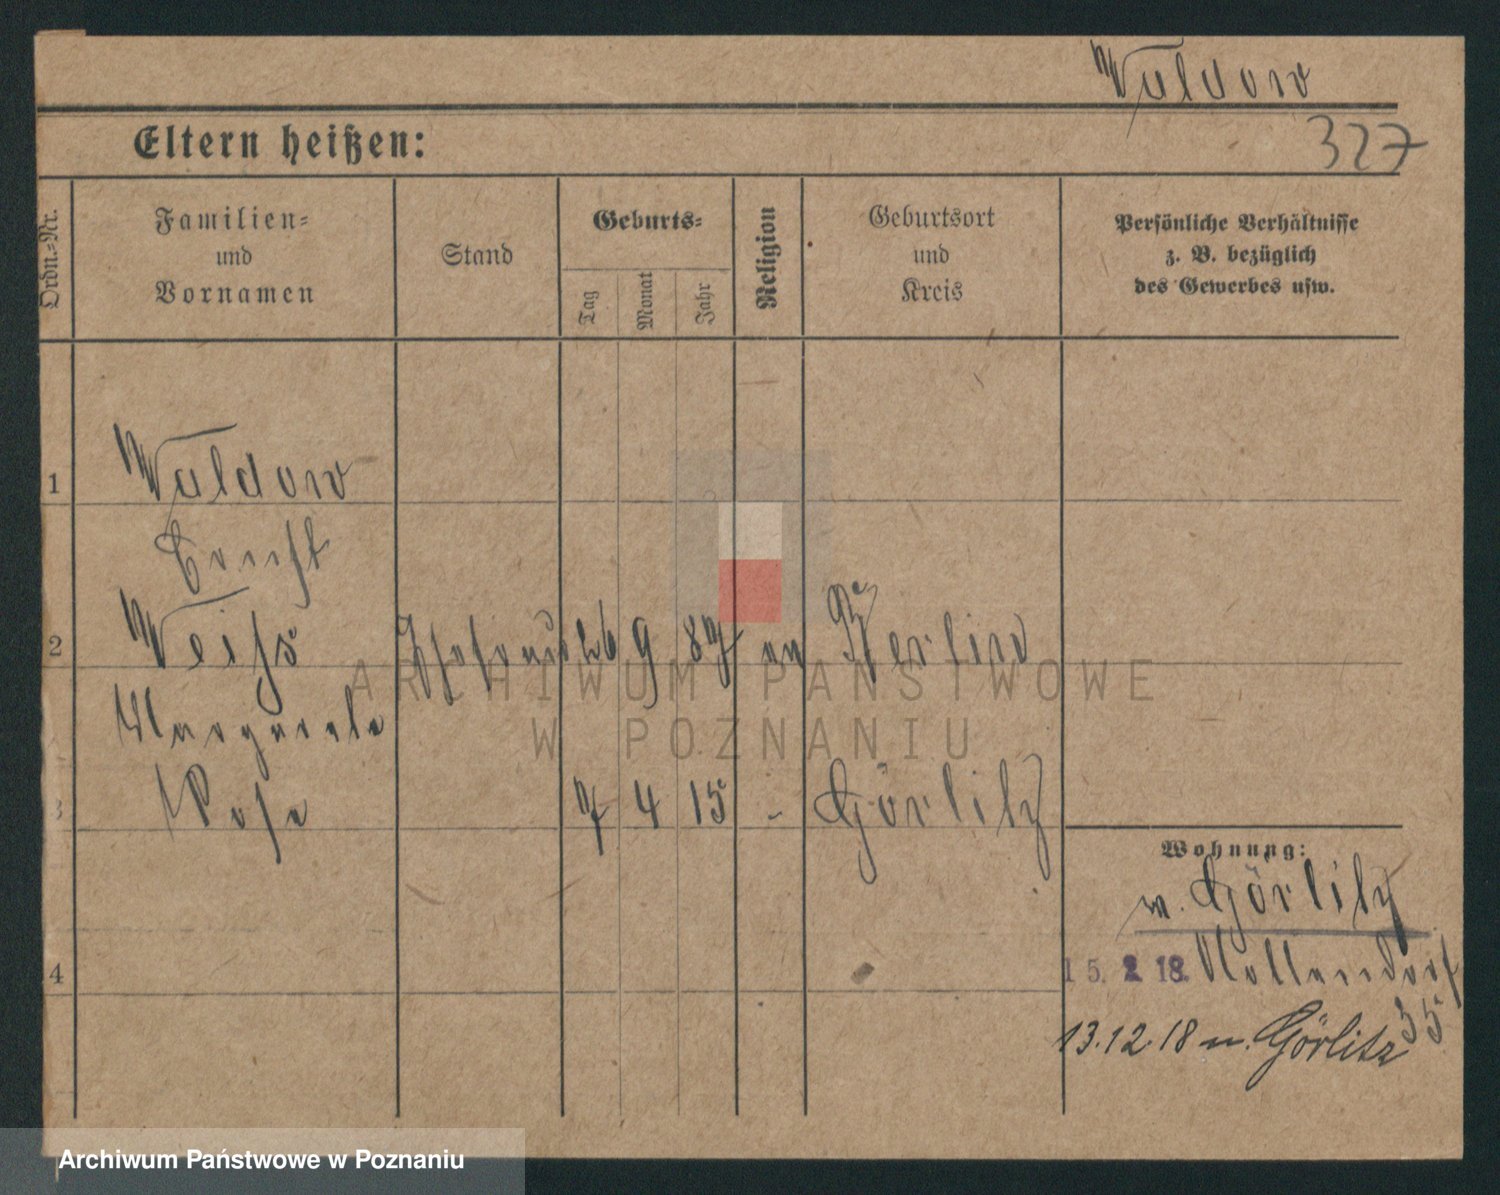 Waldow
327
Eltern heißen:
Ordn.=Nr.
Familien=
und
Vornamen
Stand
Geburts=
Tag
Monat
Jahr
Religion
Geburtsort
und
Kreis
Persönliche Verhältnisse
z. B. bezüglich
des Gewerbes usw.
1 Waldow
Ernst
2 Weiss 26 9 87 ev Berlin
Margarete
3 Rosa 7 4 15 - Görlitz
4
Wohnung:
n. Görlitz
15. 2. 18. Nollendorf
35
13.12.18 n. Görlitz
ARCHIWUM PAŃSTWOWE
W POZNANIU
Archiwum Państwowe w Poznaniu